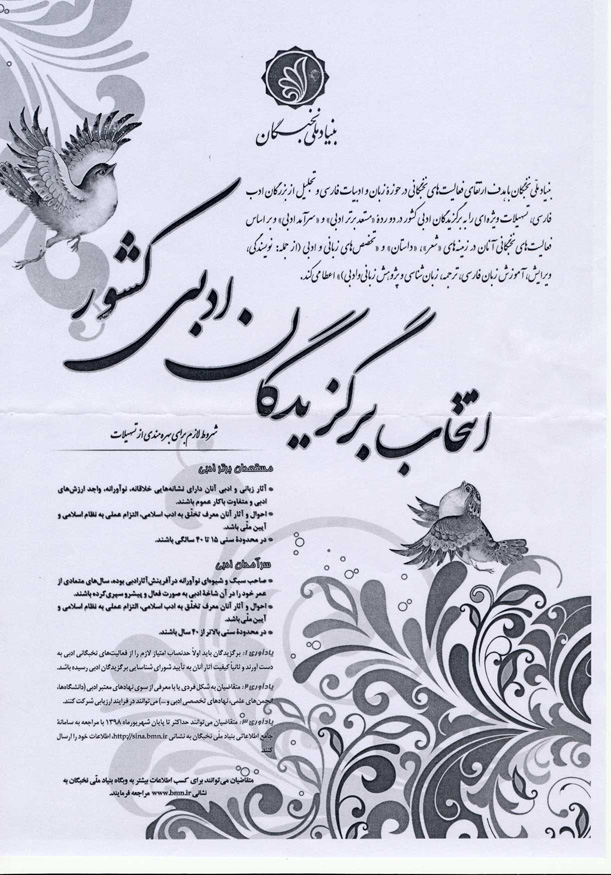 بنیاد ملی نخبگان
بنیاد ملی نخبگان با هدف ارتقای فعالیت‌های نخبگانی در حوزهٔ زبان و ادبیات فارسی و تجلیل از بزرگان ادب
فارسی، تسهیلات ویژه‌ای را به برگزیدگان ادبی کشور در دو ردهٔ «مستعد برتر ادبی» و «سرآمد ادبی» و بر اساس
فعالیت‌های نخبگانی آنان در زمینه‌های «شعر»، «داستان» و «تخصص‌های زبانی و ادبی (از جمله: نویسندگی،
ویرایش، آموزش زبان فارسی، ترجمه، زبان‌شناسی و پژوهش زبانی و ادبی)» اعطا می‌کند.
انتخاب برگزیدگان ادبی کشور
شروط لازم برای بهره‌مندی از تسهیلات
مستعدان برتر ادبی
* آثار زبانی و ادبی آنان دارای نشانه‌هایی خلاقانه، نوآورانه، واجد ارزش‌های
ادبی و متفاوت با کار عموم باشند.
* احوال و آثار آنان معرف تخلّق به ادب اسلامی، التزام عملی به نظام اسلامی و
آیین ملّی باشد.
* در محدودهٔ سنی ۱۵ تا ۴۰ سالگی باشند.
سرآمدان ادبی
* صاحب سبک و شیوه‌ای نوآورانه در آفرینش آثار ادبی بوده، سال‌های متمادی از
عمر خود را در آن شاخهٔ ادبی به صورت فعال و پیشرو سپری کرده باشند.
* احوال و آثار آنان معرف تخلّق به ادب اسلامی، التزام عملی به نظام اسلامی و
آیین ملّی باشد.
* در محدودهٔ سنی بالاتر از ۴۰ سال باشند.
یادآوری ۱: برگزیدگان باید اولاً حدنصاب امتیاز لازم را از فعالیت‌های نخبگانی ادبی به
دست آورند و ثانیاً کیفیت آثار آنان به تأیید شورای شناسایی برگزیدگان ادبی رسیده باشد.
یادآوری ۲: متقاضیان به شکل فردی یا با معرفی از سوی نهادهای معتبر ادبی (دانشگاه‌ها،
انجمن‌های علمی، نهادهای تخصصی ادبی و ...) می‌توانند در فرایند ارزیابی شرکت کنند.
یادآوری ۳: متقاضیان می‌توانند حداکثر تا پایان شهریورماه ۱۳۹۸ با مراجعه به سامانهٔ
جامع اطلاعاتی بنیاد ملی نخبگان به نشانی http://sina.bmn.ir، اطلاعات خود را ارسال
کنند.
متقاضیان می‌توانند برای کسب اطلاعات بیشتر به وبگاه بنیاد ملّی نخبگان به
نشانی www.bmn.ir مراجعه فرمایند.